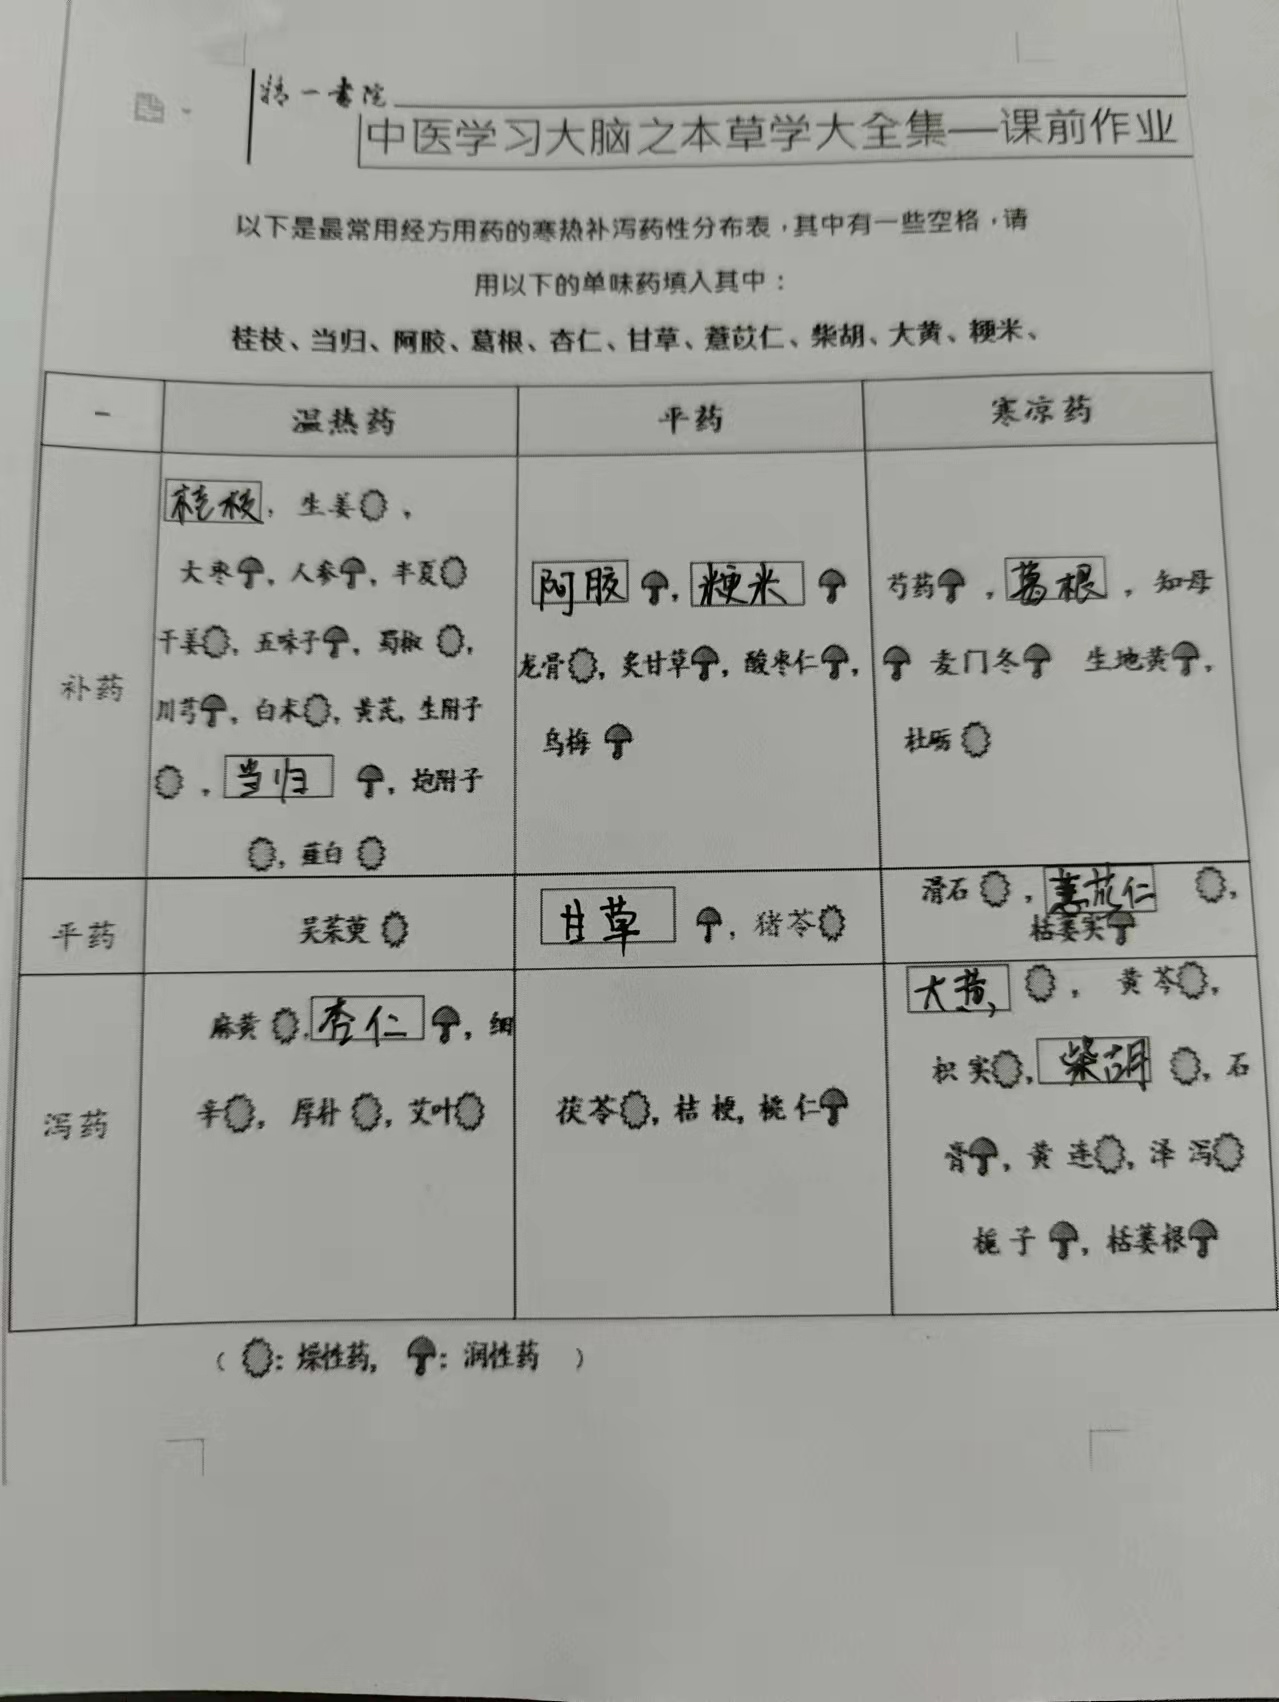 精一書院
中医学习大脑之本草学大全集—课前作业
以下是最常用经方用药的寒热补泻药性分布表，其中有一些空格，请
用以下的单味药填入其中：
桂枝、当归、阿胶、葛根、杏仁、甘草、薏苡仁、柴胡、大黄、粳米、
— 温热药 平药 寒凉药
补药
桂枝， 生姜，
大枣，人参，半夏
干姜，五味子，蜀椒，
川芎，白术，黄芪，生附子
，当归，炮附子
，薤白
阿胶，粳米
龙骨，炙甘草，酸枣仁，
乌梅
芍药，葛根，知母
麦门冬 生地黄，
牡蛎
平药
吴茱萸
甘草，猪苓
滑石，薏苡仁，
栝蒌实
泻药
麻黄，杏仁，细
辛，厚朴，艾叶
茯苓，桔梗，桃仁
大黄，黄芩，
枳实，柴胡，石
膏，黄连，泽泻
栀子，栝蒌根
（：燥性药，：润性药）